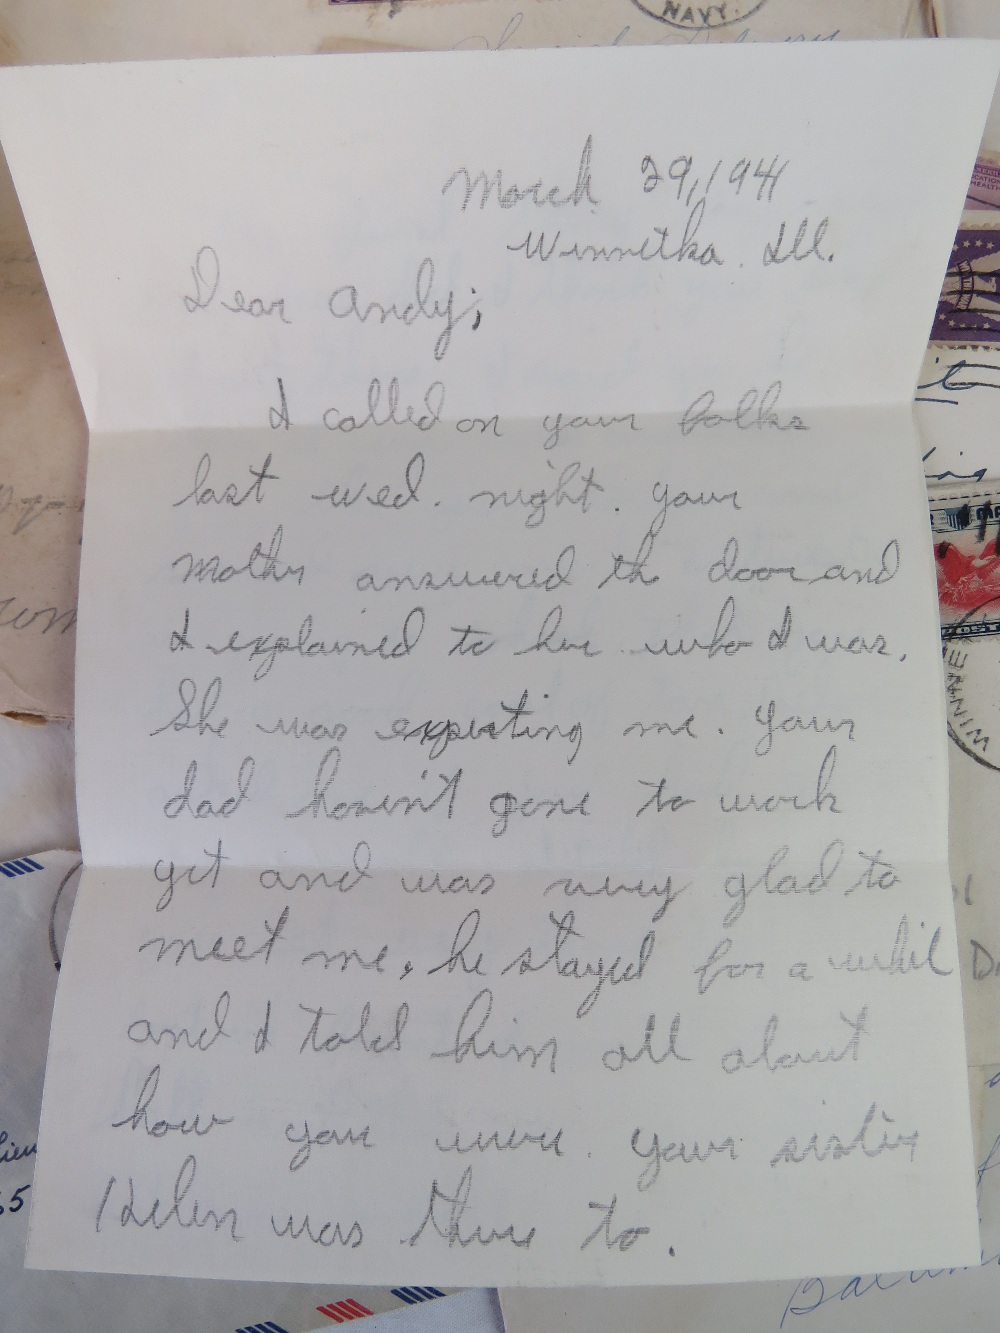 NAVY.
March 29, 1941
Winnetka. Ill.
Dear Andy;
I called on your folks
last wed. night. your
mother answered the door and
I explained to her who I was.
She was expecting me. your
dad haven't gone to work
yet and was very glad to
meet me, he stayed for a whil
and I told him all about
how you were. your sister
Helen was there to.